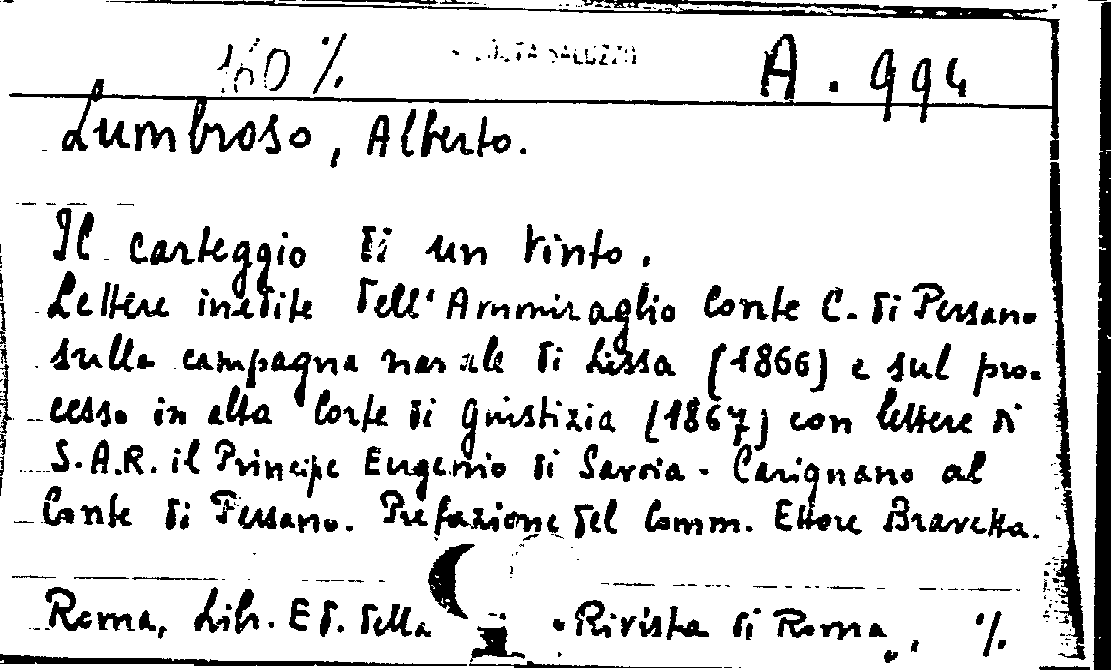 160 % A. 994
Lumbroso, Alberto.
Il carteggio di un vinto.
Lettere inedite dell'Ammiraglio Conte C. di Persano
sulla campagna navale di Lissa (1866) e sul pro-
cesso in alta Corte di Giustizia (1867) con lettere di
S.A.R. il Principe Eugenio di Savoia-Carignano al
Conte di Persano. Prefazione del Comm. Ettore Bravetta.
Roma, Libr. Ed. della "Rivista di Roma", %